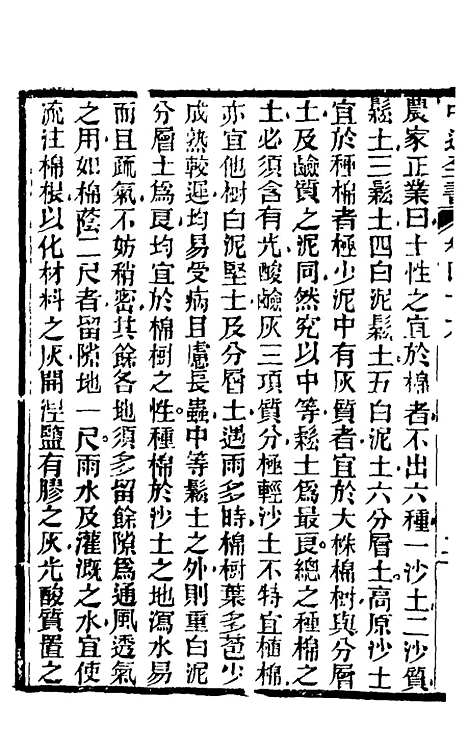 農家正業曰土性之宜於棉者不出六種一沙土二沙質
鬆土三鬆土四白泥鬆土五白泥土六分層土高原沙土
宜於種棉者極少泥中有灰質者宜於大株棉樹與分層
土及鹼質之泥同然究以中等鬆土為最良總之種棉之
土必須含有光酸鹼灰三項質分極輕沙土不特宜植棉
亦宜他樹白泥堅土及分層土遇雨多時棉樹葉多苞少
成熟較遲均易受病且慮長蟲中等鬆土之外則重白泥
分層土爲良均宜於棉樹之性種棉於沙土之地瀉水易
而且疏氣不妨稍密其餘各地須多留餘隙爲通風透氣
之用如棉蔭二尺者留隙地一尺雨水及灌溉之水宜使
流注棉根以化材料之灰開涅鹽有膠之灰光酸質置之